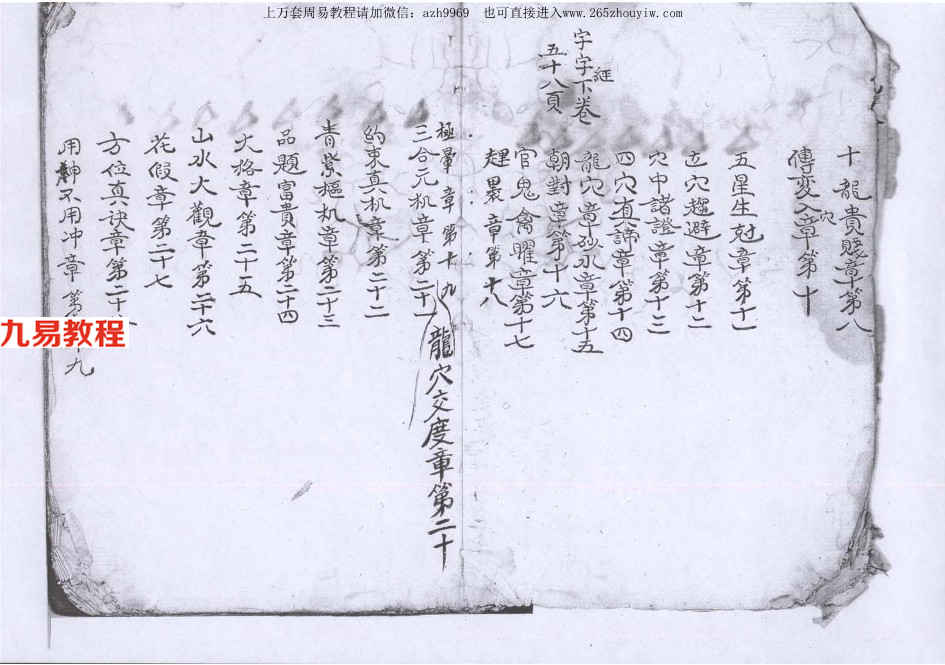 上万套周易教程请加微信：azh9969 也可直接进入www.265zhouyiw.com
十龍貴賤章第八
穴
傳変入章第十
五星生尅章第十一
立穴趨避章第十二
穴中諸證章第十三
四穴直諦章第十四
龍穴章砂水章第十五
朝對章第十六
官鬼禽曜章第十七
字字下卷
五十八頁
章第十八
極暈章第十九
龍穴交度章第二十
三合元机章第二十一
約束真机章第二十二
青紫樞机章第二十三
品題富貴章第二十四
大格章第二十五
山水大觀章第二十六
花假章第二十七
方位真诀章第二十
用神不用冲章第 九
九易教程